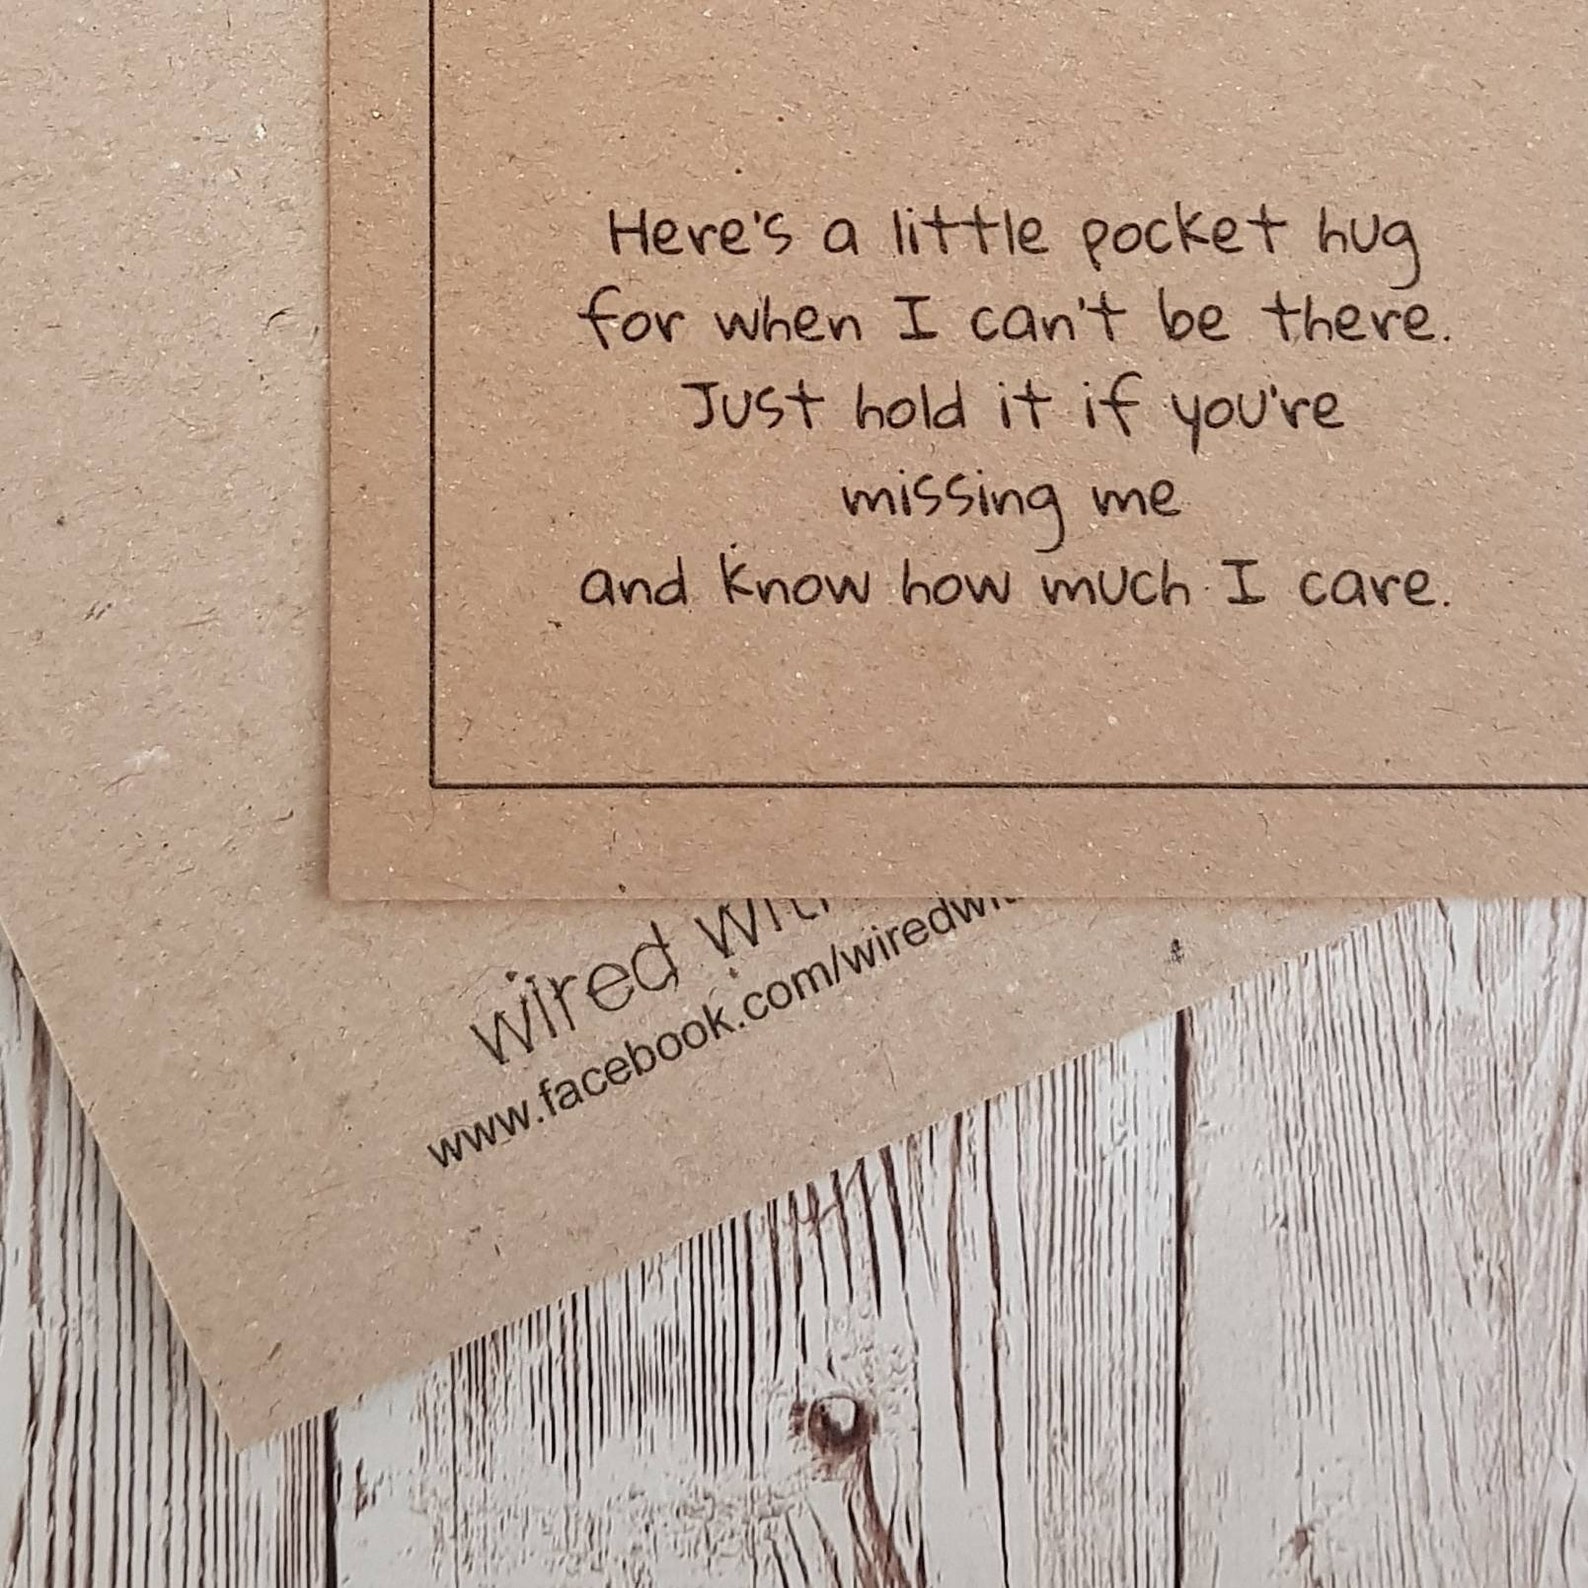 Here's a little pocket hug
for when I can't be there.
Just hold it if you're
missing me
and know how much I care.
wired
www.facebook.com/